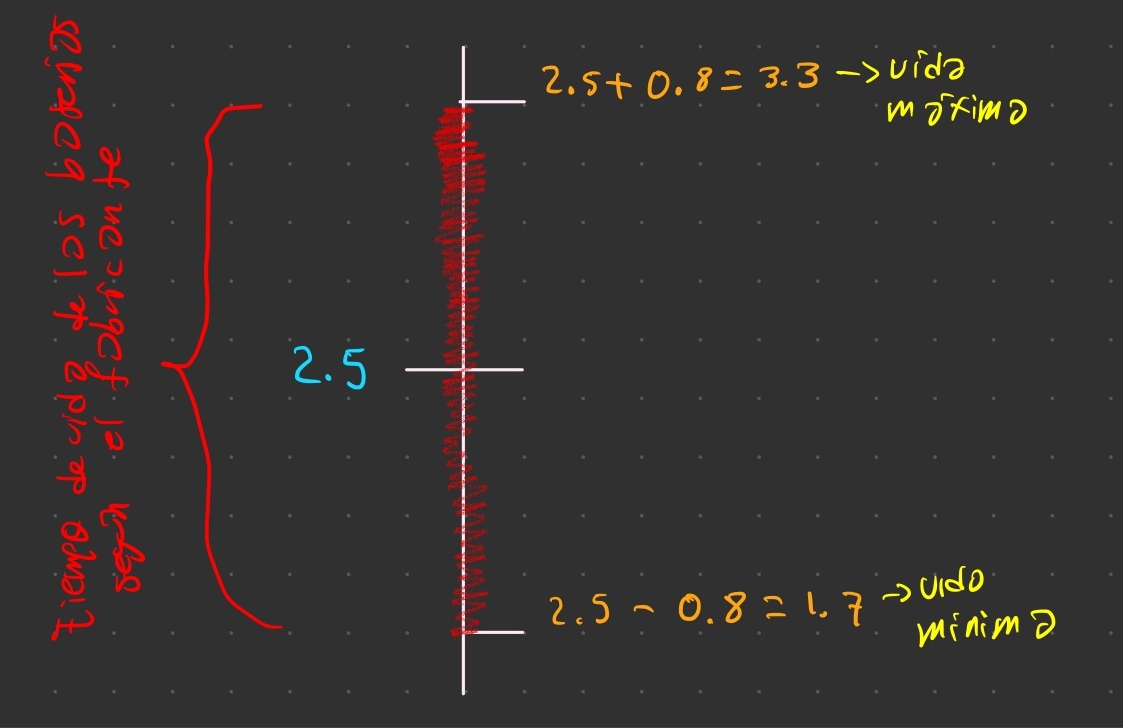 tiempo de vida de las baterías
según el fabricante
2.5 + 0.8 = 3.3 → vida
máxima
2.5
2.5 - 0.8 = 1.7 → vida
mínima